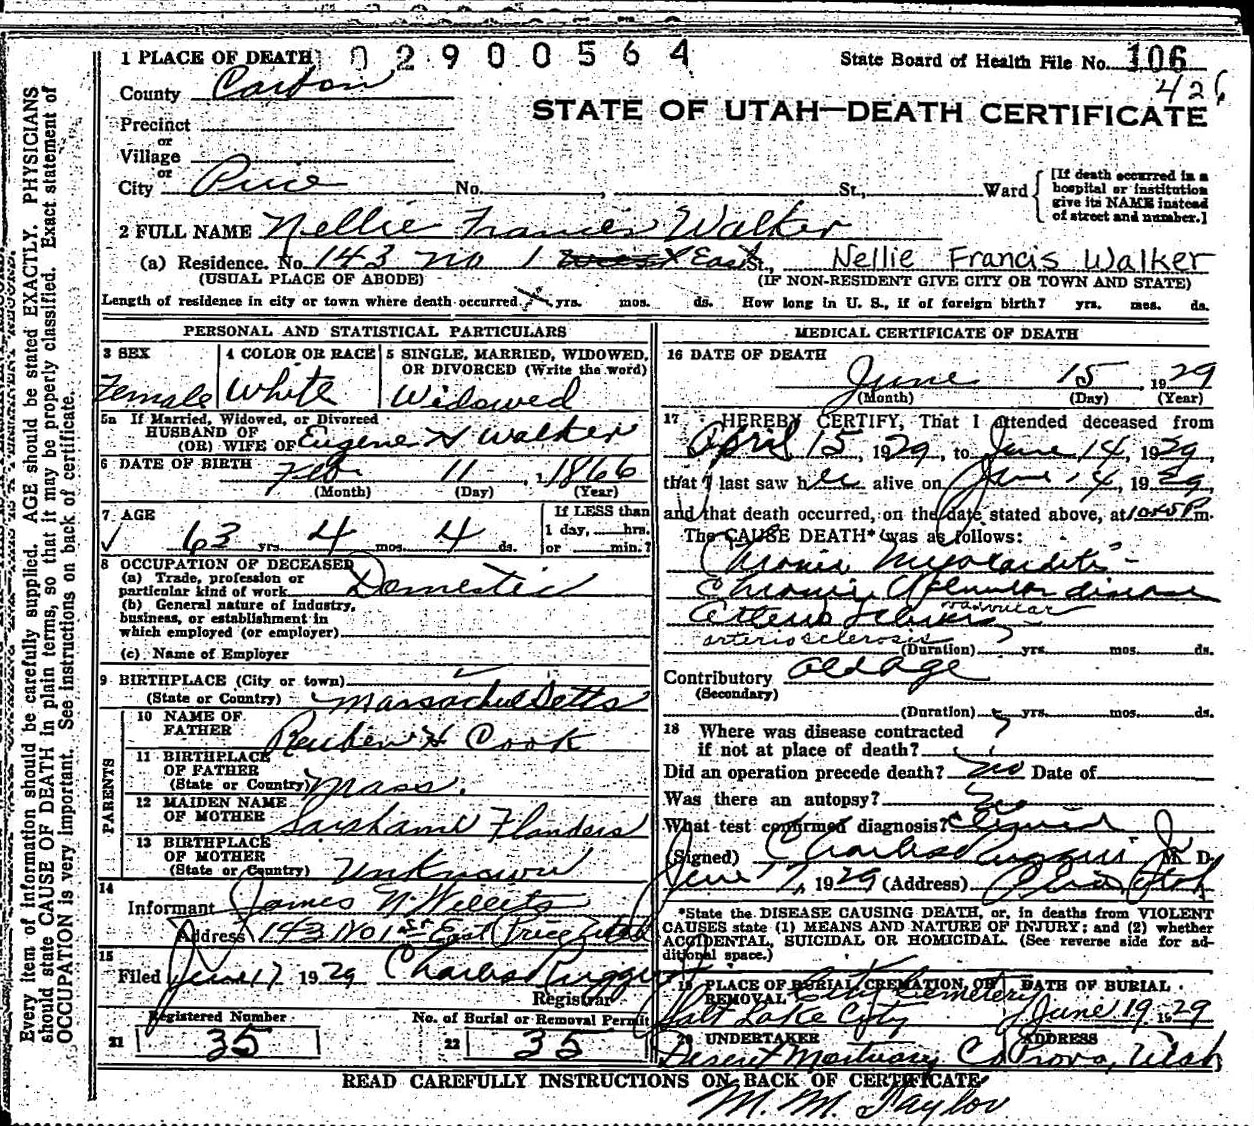 Every item of information should be carefully supplied. AGE should be stated EXACTLY. PHYSICIANS
should state CAUSE OF DEATH in plain terms, so that it may be properly classified. Exact statement of
OCCUPATION is very important. See instructions on back of certificate.
1 PLACE OF DEATH 02900564 State Board of Health File No. 106
County Carbon 426
STATE OF UTAH—DEATH CERTIFICATE
Precinct
or
Village
or
City Price No. , St., Ward
[If death occurred in a
hospital or institution
give its NAME instead
of street and number.]
2 FULL NAME Nellie Francis Walker
(a) Residence. No. 143 no 1 West East St., Nellie Francis Walker
(USUAL PLACE OF ABODE) (IF NON-RESIDENT GIVE CITY OR TOWN AND STATE)
Length of residence in city or town where death occurred yrs. mos. ds. How long in U. S., if of foreign birth? yrs. mos. ds.
PERSONAL AND STATISTICAL PARTICULARS
3 SEX
Female
4 COLOR OR RACE
White
5 SINGLE, MARRIED, WIDOWED,
OR DIVORCED (Write the word)
Widowed
5a If Married, Widowed, or Divorced
HUSBAND OF
(OR) WIFE OF Eugene H Walker
6 DATE OF BIRTH Feb 11, 1866
(Month) (Day) (Year)
7 AGE
63 yrs. 4 mos. 4 ds.
If LESS than
1 day, hrs.
or min.?
8 OCCUPATION OF DECEASED
(a) Trade, profession or
particular kind of work Domestic
(b) General nature of industry,
business, or establishment in
which employed (or employer)
(c) Name of Employer
9 BIRTHPLACE (City or town)
(State or Country) Massachusetts
PARENTS
10 NAME OF
FATHER Reuben H Cook
11 BIRTHPLACE
OF FATHER
(State or Country) Mass.
12 MAIDEN NAME
OF MOTHER Flanders
13 BIRTHPLACE
OF MOTHER
(State or Country) Unknown
14
Informant James N. Willits
Address 143 No 1st East Price Utah
15
Filed June 17 1929 Charles Ruggeri
Registrar
Registered Number
21 35
No. of Burial or Removal Permit
22 35
MEDICAL CERTIFICATE OF DEATH
16 DATE OF DEATH
June 15, 1929
(Month) (Day) (Year)
17 I HEREBY CERTIFY, That I attended deceased from
April 15, 1929, to June 14, 1929,
that I last saw her alive on June 14, 1929,
and that death occurred, on the date stated above, at 10:45 P m.
The CAUSE DEATH* was as follows:
Chronic Myocarditis-
Chronic disease
valvular
Arterio Sclerosis
arteriosclerosis
(Duration) ? yrs. mos. ds.
Contributory Old Age
(Secondary)
(Duration) ? yrs. mos. ds.
18 Where was disease contracted
if not at place of death?
Did an operation precede death? no Date of
Was there an autopsy? no
What test confirmed diagnosis? Clinical
(Signed) Charles Ruggeri Jr M. D.
June 17, 1929 (Address) Price Utah
*State the DISEASE CAUSING DEATH, or, in deaths from VIOLENT
CAUSES state (1) MEANS AND NATURE OF INJURY; and (2) whether
ACCIDENTAL, SUICIDAL OR HOMICIDAL. (See reverse side for ad-
ditional space.)
19 PLACE OF BURIAL, CREMATION, OR
REMOVAL City Cemetery
Salt Lake City
DATE OF BURIAL
June 19, 1929
20 UNDERTAKER
Deseret Mortuary Co
ADDRESS
Provo, Utah
READ CAREFULLY INSTRUCTIONS ON BACK OF CERTIFICATE
M. M. Taylor